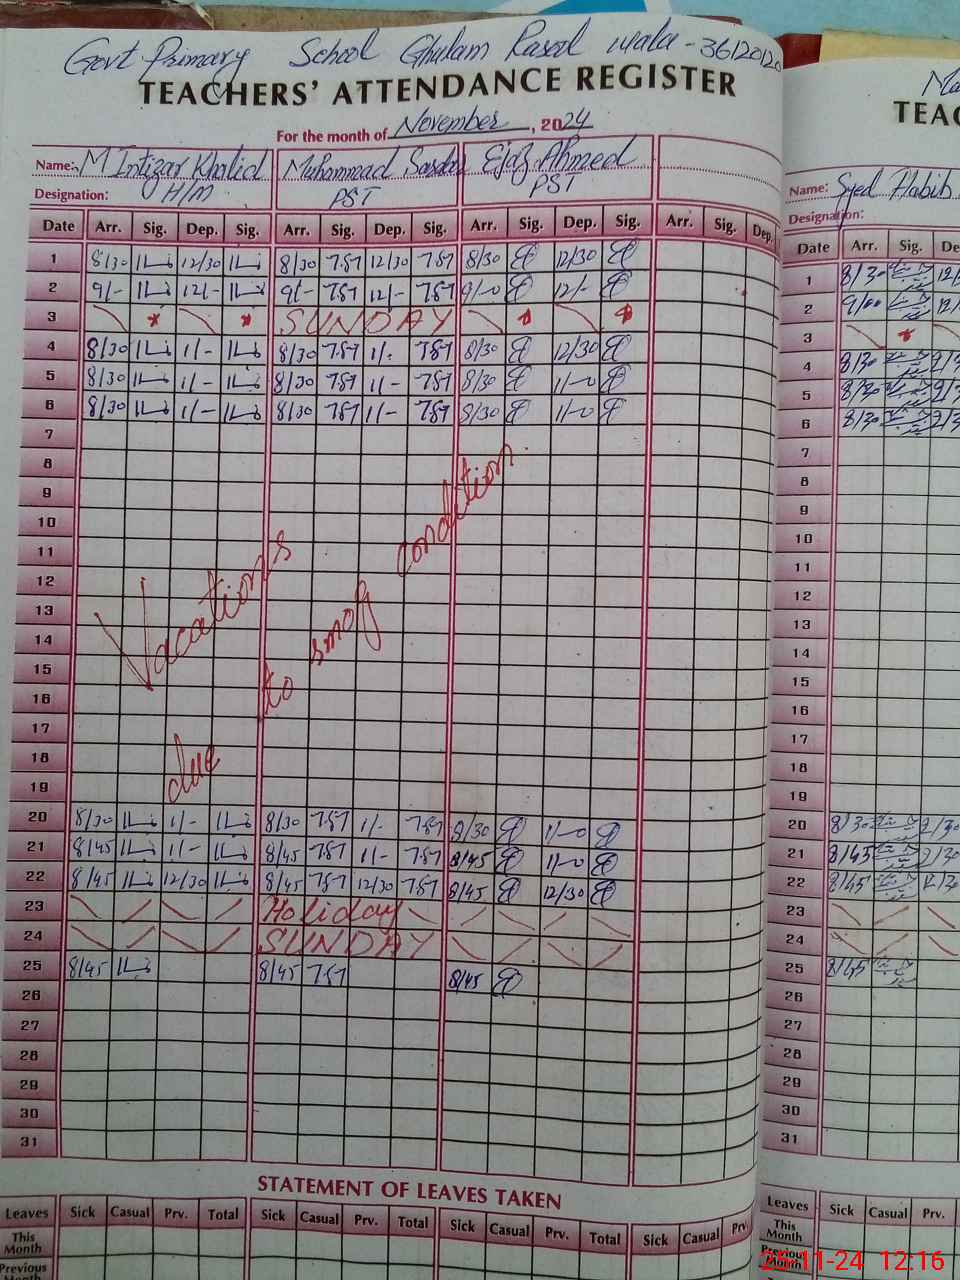 Govt Primary School Ghulam Rasool wala - 36120120
TEACHERS' ATTENDANCE REGISTER
For the month of November, 2024
Name: M Intizar Khalid Muhammad Ejaz Ahmed
Designation: H/M PST PST
Date Arr. Sig. Dep. Sig. Arr. Sig. Dep. Sig. Arr. Sig. Dep. Sig. Arr. Sig. Dep.
1 8/30 12/30 8/30 12/30 8/30 12/30
2 9/- 12/- 9/- 12/- 9/-0 12/-
3 SUNDAY
4 8/30 1/- 8/30 1/- 8/30 12/30
5 8/30 1/- 8/30 1/- 8/30 1/-0
6 8/30 1/- 8/30 1/- 8/30 1/-0
7
8
9
10
11
12
13
14
15
16
17
18
19
Vacations due to smog condition.
20 8/30 1/- 8/30 1/- 8/30 1/-0
21 8/45 1/- 8/45 1/- 8/45 1/-0
22 8/45 12/30 8/45 12/30 8/45 12/30
23 Holiday
24 SUNDAY
25 8/45 8/45 8/45
26
27
28
29
30
31
STATEMENT OF LEAVES TAKEN
Leaves Sick Casual Prv. Total Sick Casual Prv. Total Sick Casual Prv. Total Sick Casual Prv.
This Month
Previous Month
TEAC
Name: Syed Habib
Designation:
Date Arr. Sig. De
1 8/30 12/
2 9/00 12/
3
4 8/30 2/3
5 8/30 2/3
6 8/30 2/3
7
8
9
10
11
12
13
14
15
16
17
18
19
20 8/30 2/30
21 8/45 2/30
22 8/45 12/30
23
24
25 8/45
26
27
28
29
30
31
Leaves Sick Casual Prv.
This Month
Previous Month
25-11-24 12:16